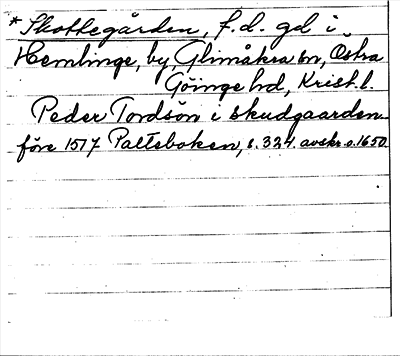 * Skottegården, f.d. gd i
Hemlinge, by, Glimåkra sn, Östra
Göinge hd, Krist. l.
Peder Tordsön i skudgaarden
före 1517 Palteboken, s. 324. avskr. o. 1650.